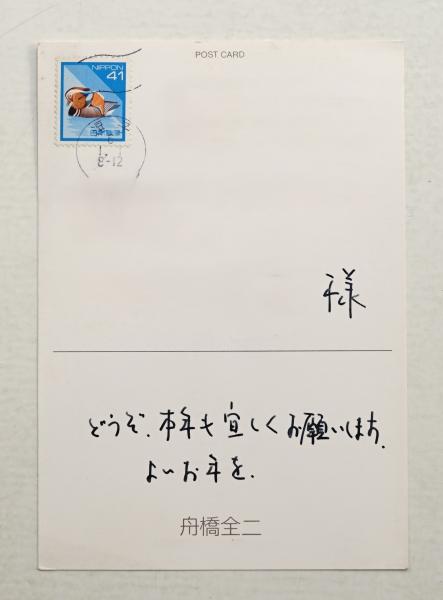 POST CARD
NIPPON
41
8-12
様
どうぞ、本年も宜しくお願いします、
よいお年を、
舟橋全二